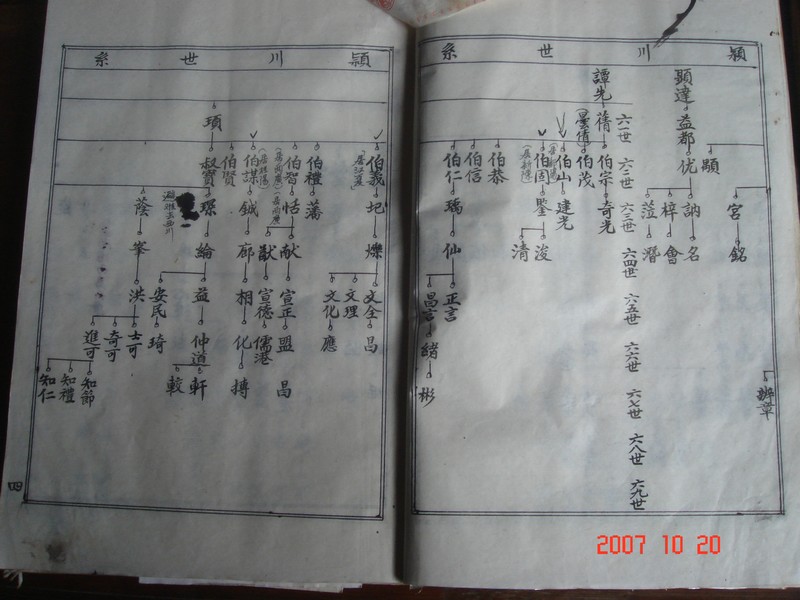 頴川世系
顕達
益都
优
訥
名
梓
會
蒞
潛
顒
宮
銘
辦章
譚光
蒨
伯宗
奇光
(曇值)
伯茂
伯山
建光
伯固
鑒
浚
清
伯恭
伯信
伯仁
瑀
仙
正言
昌言
緒
彬
六一世
六二世
六三世
六四世
六五世
六六世
六七世
六八世
六九世
頴川世系
伯義
(居江夏)
圯
爍
文全
昌
文理
文化
應
伯禮
藩
伯智
恬
献
宣正
盟
昌
猷
宣德
儒港
伯謀
鉞
廊
相
化
摶
伯賢
頊
叔寶
琛
論
益
仲道
軒
較
安民
琦
蔭
峯
洪
士可
奇可
進可
知節
知禮
知仁
四
2007 10 20